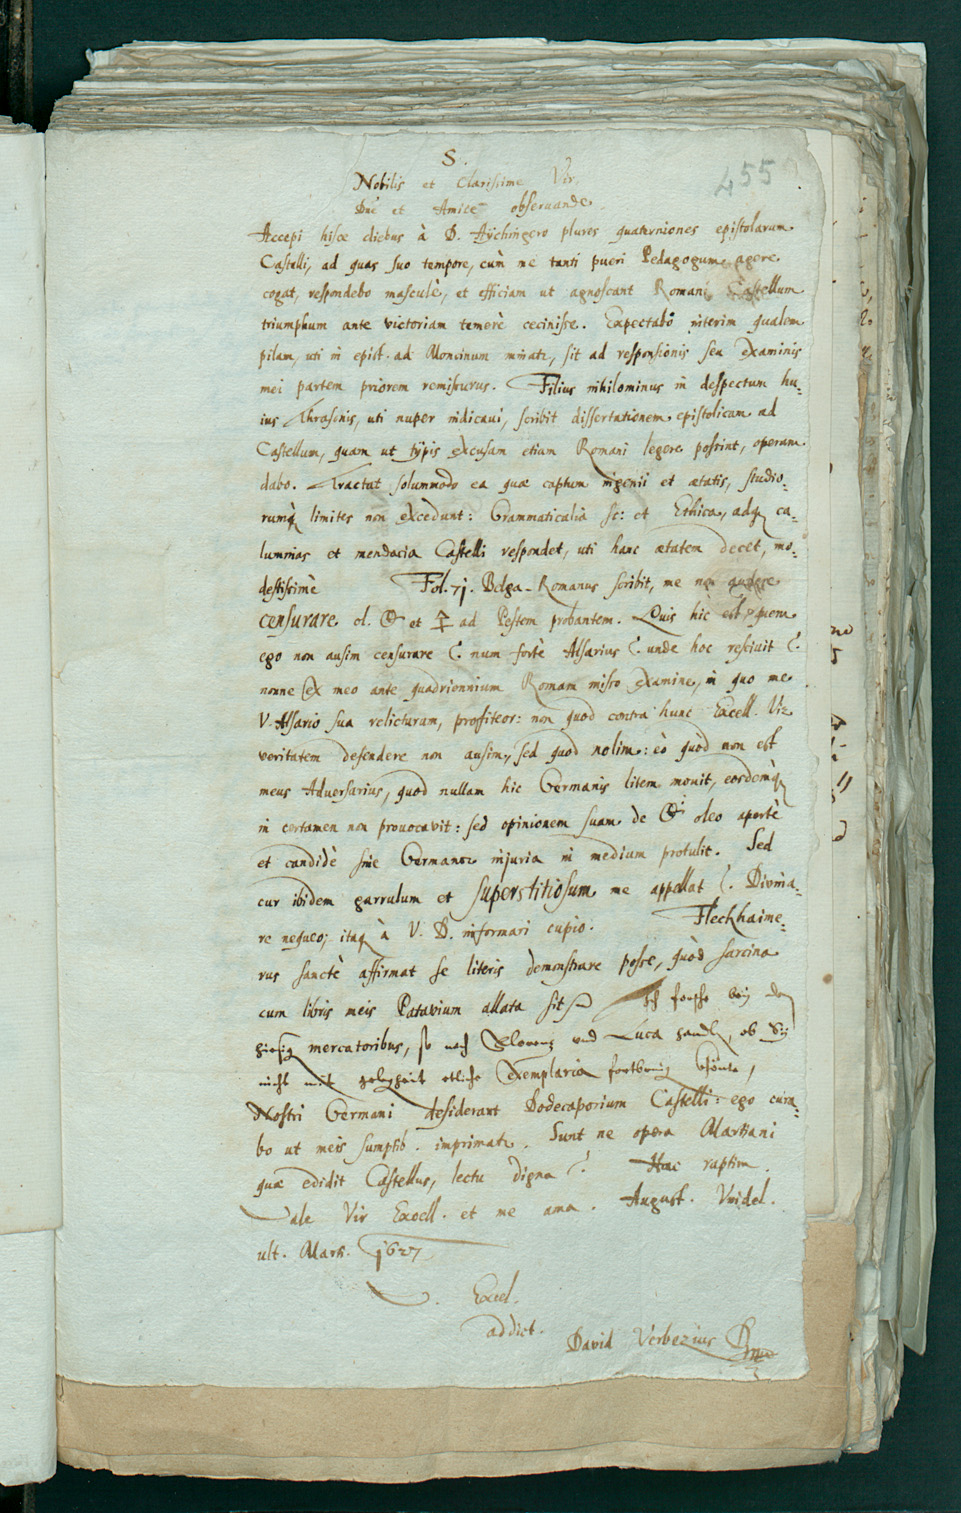 455
S.
Nobilis et Clarissime Vir,
Dne et Amice obseruande.
Accepi hisce diebus à D. Aÿchingero plures quaterniones epistolarum
Castelli, ad quas suo tempore, cùm me tanti pueri Pedagogum agere
cogat, respondebo masculè, et efficiam ut agnoscant Romani Castellum
triumphum ante victoriam temerè cecinisse. Expectabo interim qualem
pilam, uti in epist. ad Moncinum minatr, sit ad responsionis seu examinis
mei partem priorem remissurus. Filius nihilominus in despectum hu-
ius Thrasonis, uti nuper indicaui, scribit dissertationem epistolicam ad
Castellum, quam ut typis excusam etiam Romani legere possint, operam
dabo. Tractat solummodo ea quæ captum ingenii et ætatis, studio-
rumq limites non excedunt: Grammaticalia sc: et Ethica, adq ca-
lumnias et mendacia Castelli respondet, uti hanc ætatem decet, mo-
destissimè Fol. 71. Belga-Romanus scribit, me non audere
censurare ol. et ad Pestem probantem. Quis hic est quem
ego non ausim censurare ? num fortè Alsarius ? unde hoc resciuit ?
nonne ex meo ante quadriennium Romam misso examine, in quo me
V. Alsario sua relicturum, profiteor: non quod contra hunc Excell. Vir
veritatem defendere non ausim, sed quod nolim: eò quòd non est
meus Adversarius, quod nullam hic Germanis litem mouit, eosdemq
in certamen non prouocavit: sed opinionem suam de oleo apertè
et candidè sine Germanor injuria in medium protulit. Sed
cur ibidem garrulum et superstitiosum me appellat ? Divina-
re nequeo; itaq à V. D. informari cupio. Fleckhaime-
rus sanctè affirmat se literis demonstrare posse, quòd sarcina
cum libris meis Patavium allata sit. Ich forsche beÿ den
hiesig mercatoribus, so nach Florenz und Luca handln, ob Sÿ
nicht mit gelegheit etliche Exemplaria fortbring khönte,
Nostri Germani desiderant Dodecaporium Castelli: ego cura-
bo ut meis sumptib. imprimatr. Sunt ne opera Martiani
quæ edidit Castellus, lectu digna ? Hæc raptim.
Vale Vir Excell. et me ama. August. Vindel.
ult. Marti. 1627
Excel.
addict.
David Verbezius D